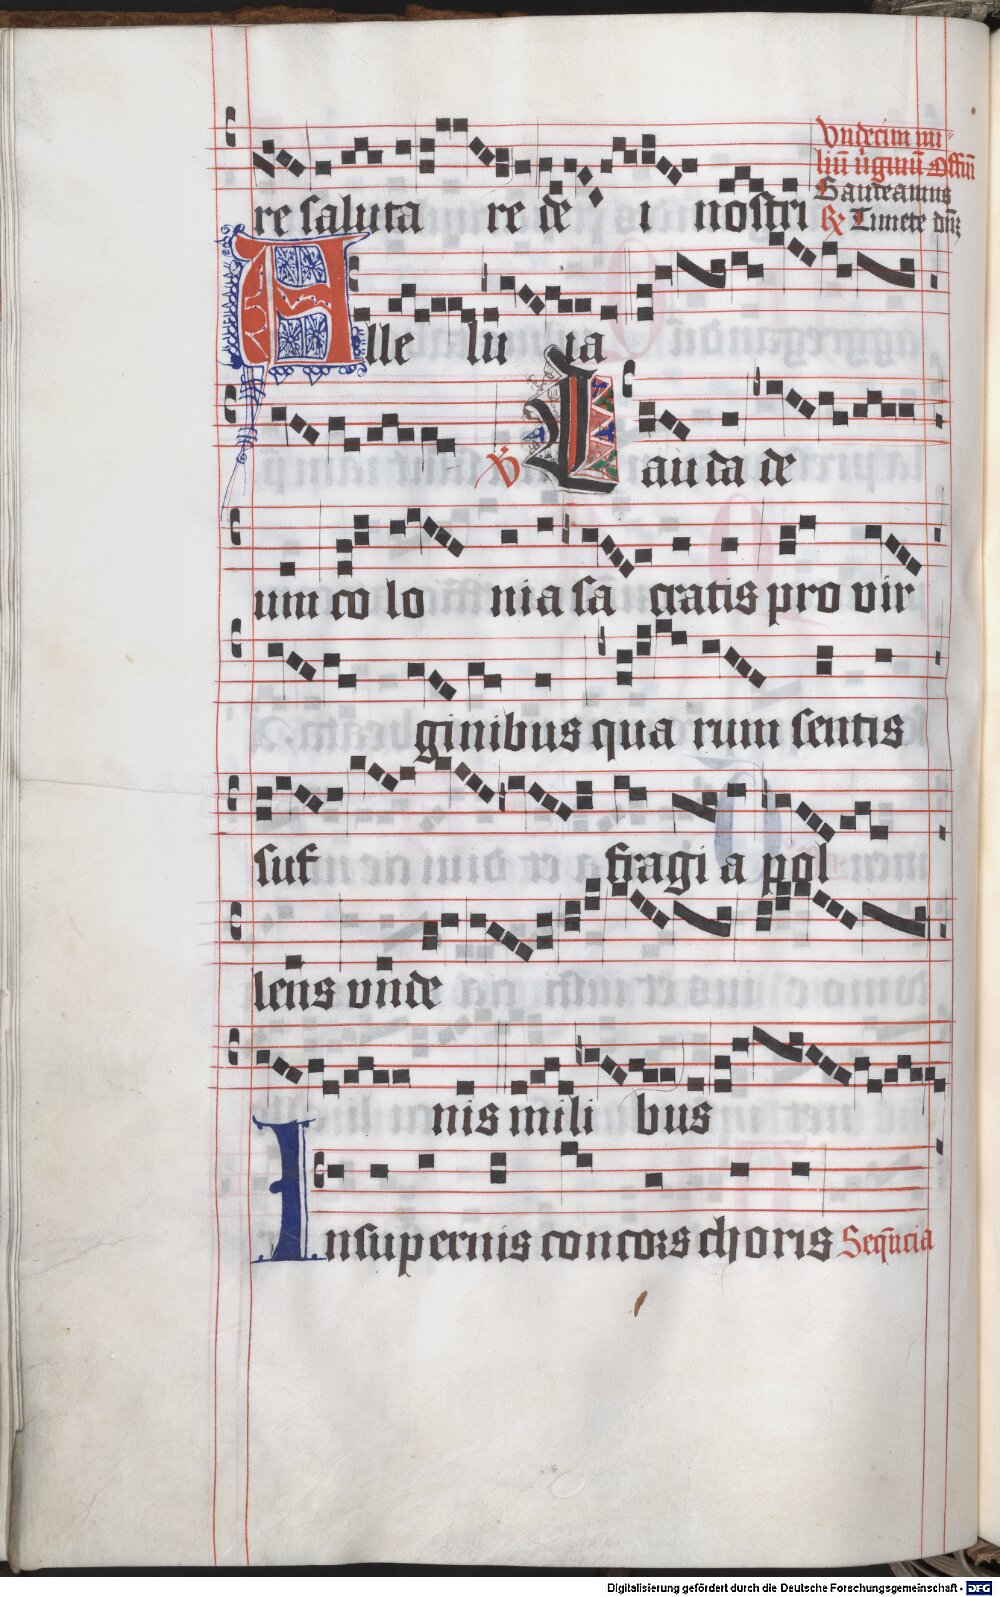 Vndecim mi-
liũ v̇ginũ Offiñ
re saluta re de i nostri Gaudeamus
R Timete dñ3
Alle lu ia
V Lauda de
um co lo nia sa cratis pro vir
ginibus qua rum sentis
suf fragi a pol
lens vnde
nis mili bus
In supernis concors choris Seq̃ncia
Digitalisierung gefördert durch die Deutsche Forschungsgemeinschaft - DFG